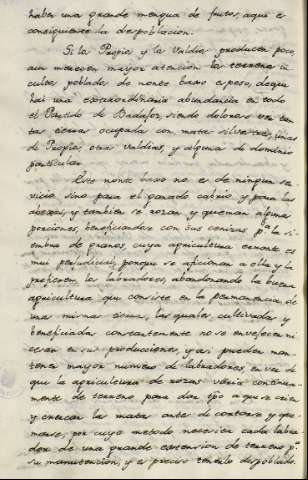 haber una grande mengua de frutos, aqui es
consiguiente la despoblacion.
Si los Propios y los Valdios producen poco,
aun merecen mayor atencion los terrenos in
cultos poblados de monte baxo espeso, de que
hai una extraordinaria abundancia en todo
el Partido de Badajoz, siendo doloroso ver tan
tas tierras ocupadas con matas silvestres, unas
de Propios, otras valdias, y algunas de dominio
particular.
Este monte baxo no es de ningun ser
vicio sino para el ganado cabrio, y para las
abexas, y tambien se rozan y queman algunas
porciones, beneficiandose con sus cenizas pª la si
embra de granos, cuya agricultura errante es
mui perjudicial, porque se aficionan a ella y la
prefieren los labradores, abandonando la buena
agricultura que consiste en la permanencia de
una misma tierra, las quales cultivadas y
beneficiadas constantemente no se envejecen ni
cesan en sus producciones, y asi pueden man
tener mayor numero de labradores, en vez de
que la agricultura de rozas varia continua
mente de terreno para dar tpo a que se crien
y crezcan las matas antes de cortarse y que
marse, por cuyo metodo necesita cada labra
dor de una grande extension de terreno pª
su manutencion, y es preciso tenerlo despoblado.